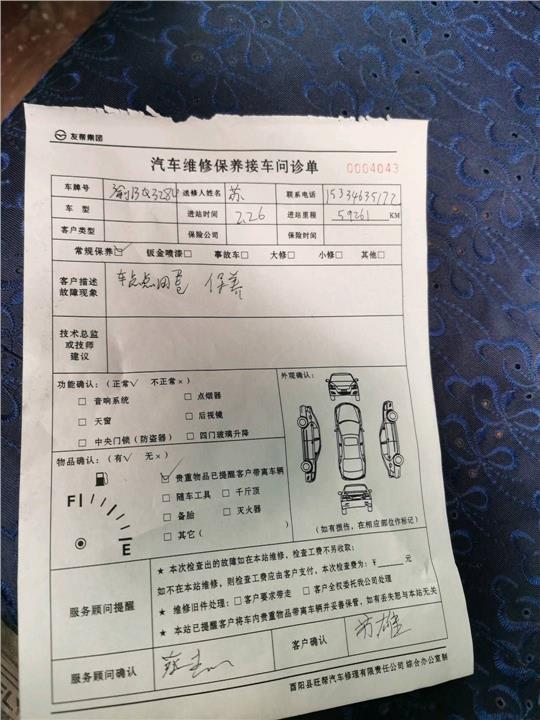 友帮集团
汽车维修保养接车问诊单 0004043
车牌号 渝BQ3284 送修人姓名 苏 联系电话 15334635177
车 型 进站时间 2.26 进站里程 59261 KM
客户类型 保险公司 保险时间
常规保养☑ 钣金喷漆□ 事故车□ 大修□ 小修□ 其他□
客户描述 故障现象 保养
技术总监
或技师
建议
功能确认：（正常√ 不正常×） 外观确认：
□ 音响系统 □ 点烟器
□ 天窗 □ 后视镜
□ 中央门锁（防盗器） □ 四门玻璃升降
物品确认：（有√ 无×）
☑ 贵重物品已提醒客户带离车辆
□ 随车工具 □ 千斤顶
□ 备胎 □ 灭火器
□ 其它（ ）
F
E
（如有损伤，在相应部位作标记）
服务顾问提醒
★ 本次检查出的故障如在本站维修，检查工费不另收取；
如不在本站维修，则检查工费应由客户支付，本次检查费为：¥ 元
★ 维修旧件处理：□ 客户要求带走 □ 客户全权委托我公司处理
★ 本站已提醒客户将车内贵重物品带离车辆并妥善保管，如有丢失恕与本站无关
服务顾问确认 客户确认
酉阳县旺帮汽车修理有限责任公司 综合办公室制